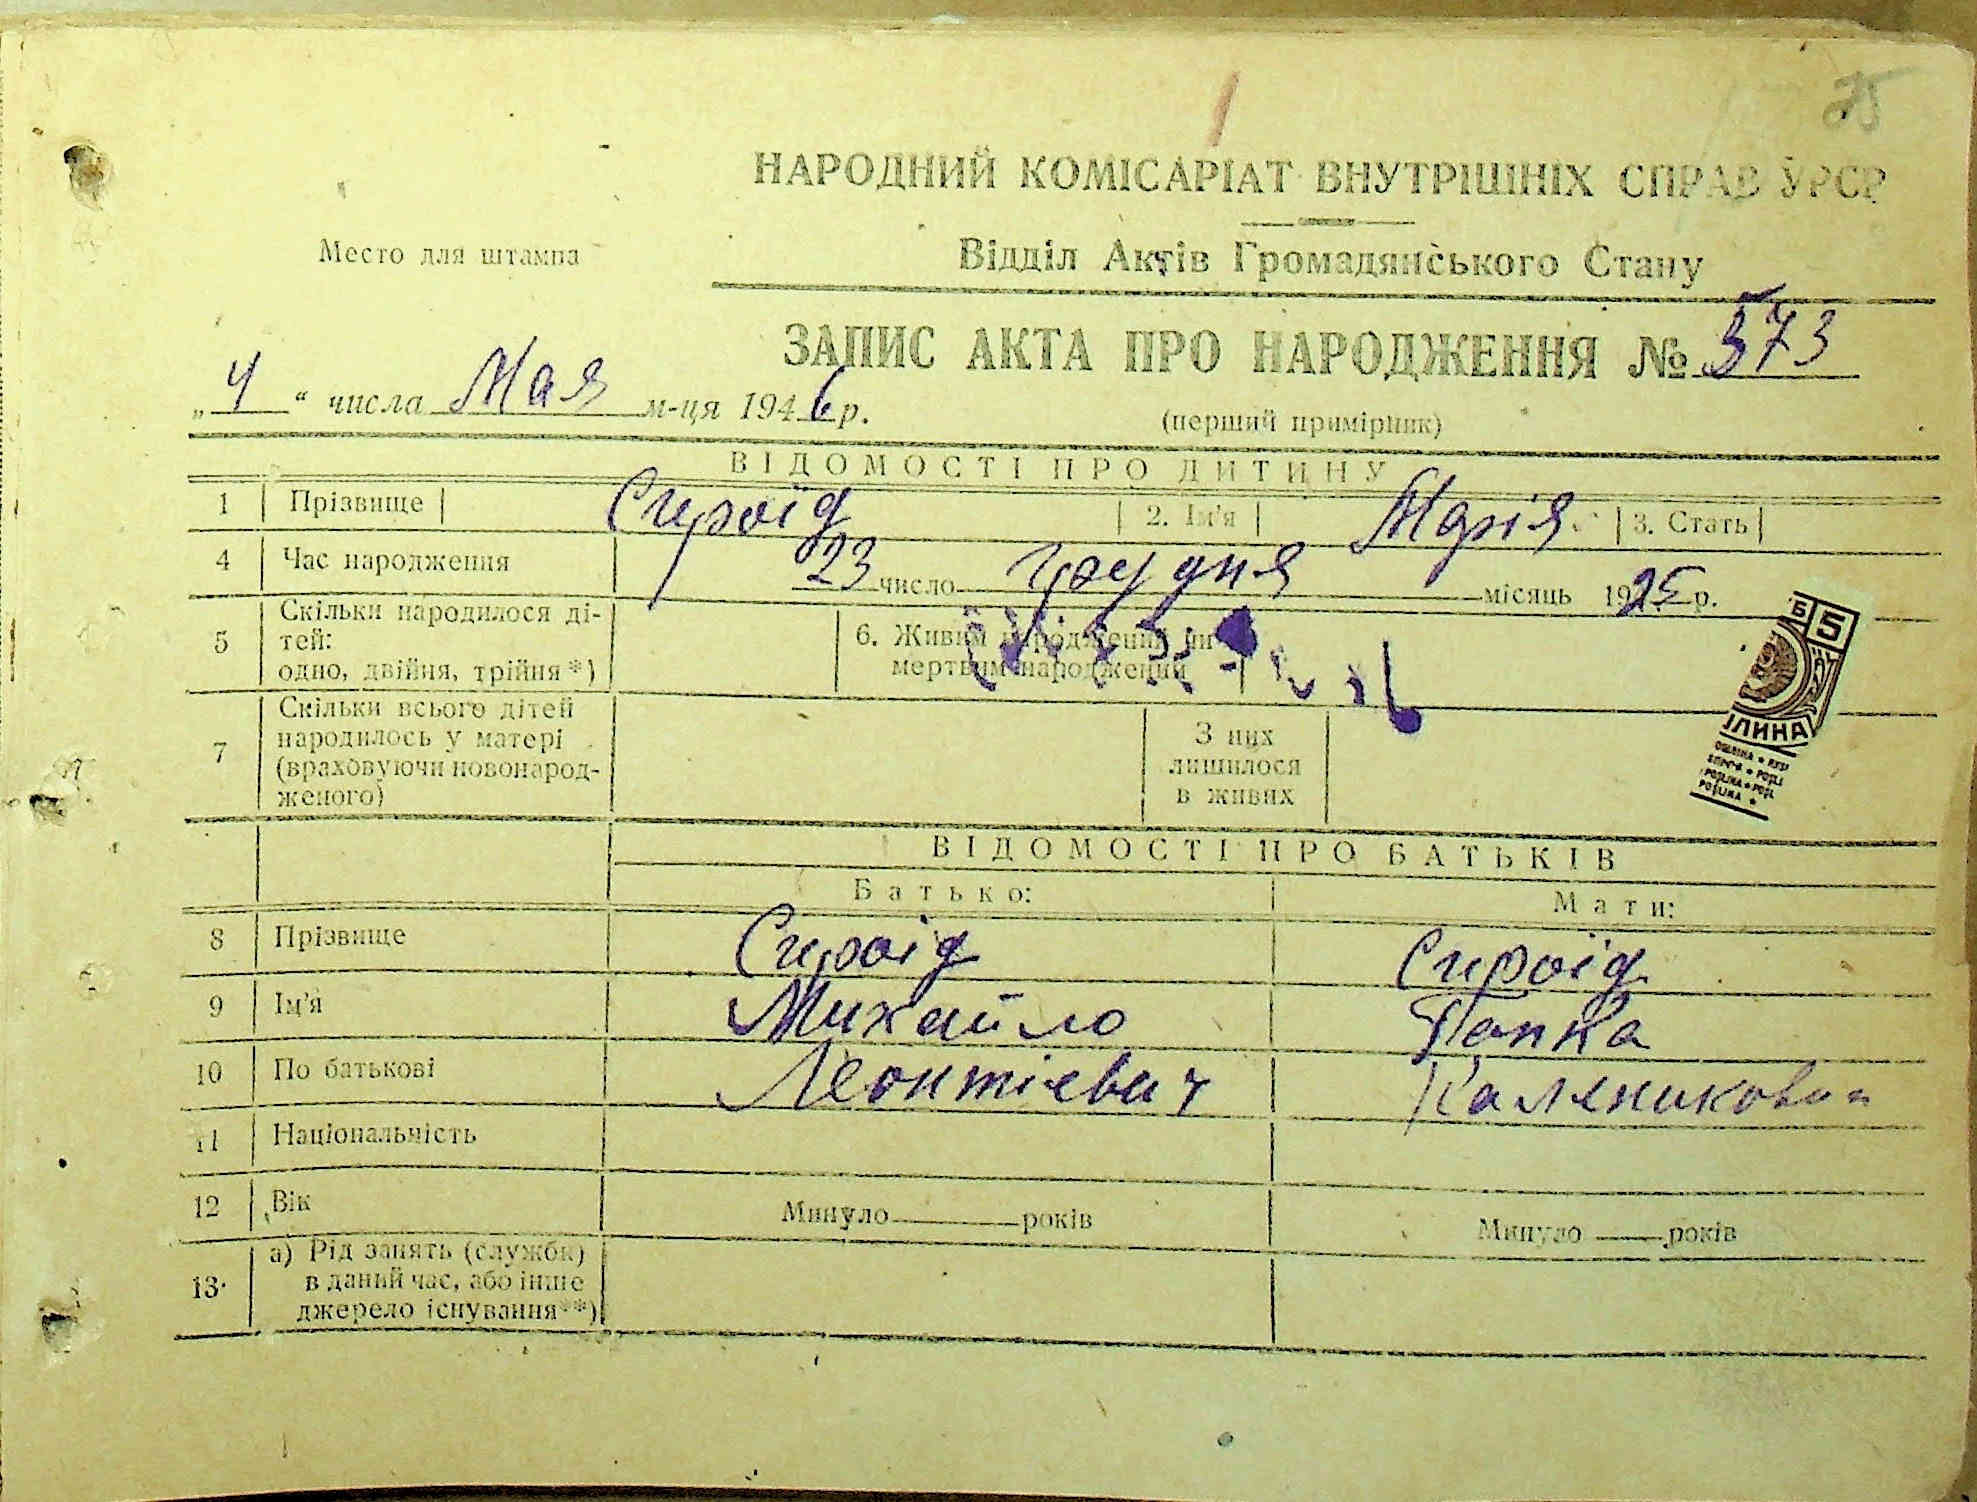 25
НАРОДНИЙ КОМІСАРІАТ ВНУТРІШНІХ СПРАВ УРСР
Место для штампа
Відділ Актів Громадянського Стану
ЗАПИС АКТА ПРО НАРОДЖЕННЯ № 573
„ 4 “ числа Мая м-ця 1946 р.
(перший примірник)
ВІДОМОСТІ ПРО ДИТИНУ
1 Прізвище Сироїд 2. Ім'я Марія 3. Стать
4 Час народження 23 число грудня місяць 1925 р.
5 Скільки народилося ді-
тей:
одно, двійня, трійня*)
6. Живим народжений чи
мертвим народжений
7 Скільки всього дітей
народилось у матері
(враховуючи новонарод-
женого)
З них
лишилося
в живих
Б 5
ВІДОМОСТІ ПРО БАТЬКІВ
Батько: Мати:
8 Прізвище Сироїд Сироїд
9 Ім'я Михайло
10 По батькові Леонтієвич
11 Національність
12 Вік Минуло рокiв Минуло років
13. а) Рід занять (служби)
в даний час, або інше
джерело існування**)